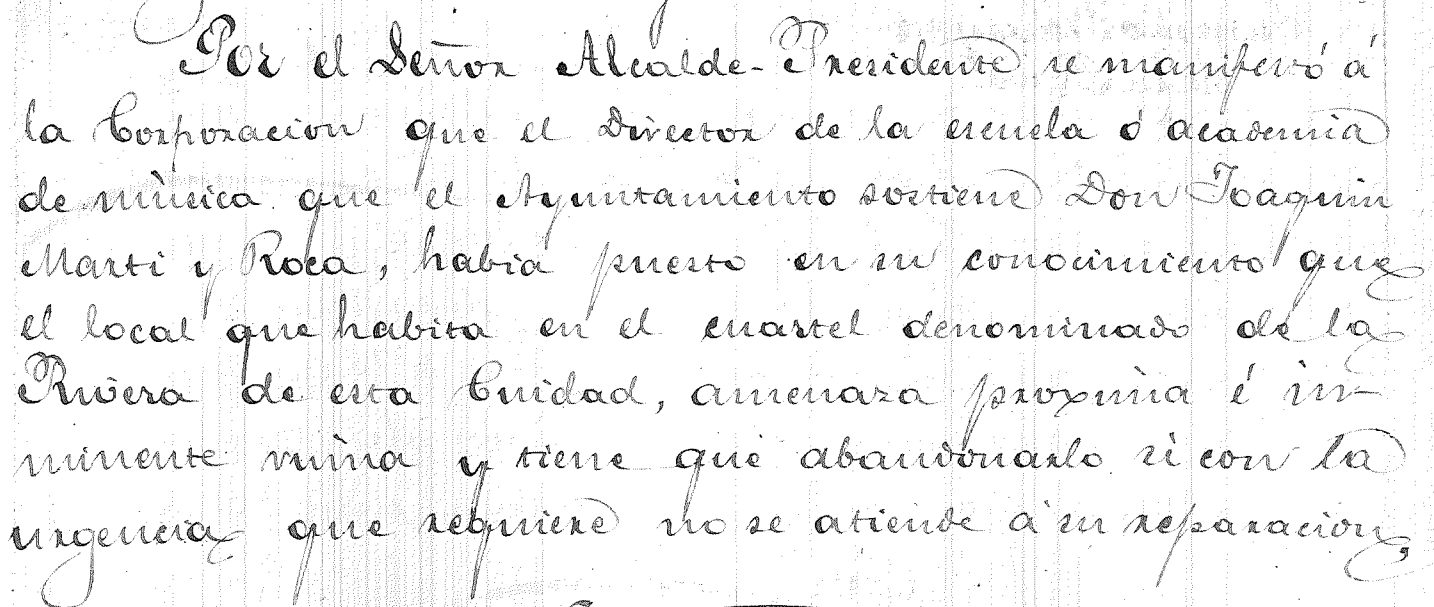 Por el Señor Alcalde-Presidente se manifestó á
la Corporacion que el Director de la escuela ó academia
de música que el Ayuntamiento sostiene Don Joaquin
Marti y Roca, habia puesto en su conocimiento que
el local que habita en el cuartel denominado de la
Rivera de esta Cuidad, amenaza proxima é in-
minente ruina y tiene que abandonarlo si con la
urgencia que requiere no se atiende á su reparacion,